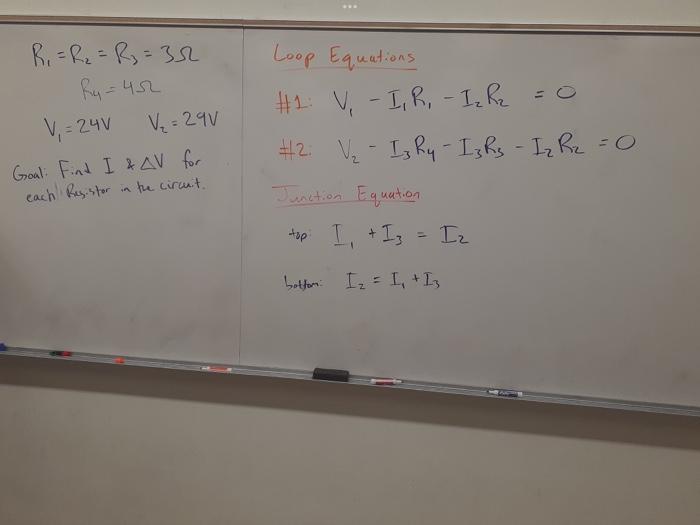 R₁ = R₂ = R₃ = 3Ω
R₄ = 4Ω
V₁ = 24V V₂ = 29V
Goal: Find I & ΔV for
each Resistor in the circuit.
Loop Equations
#1: V₁ - I₁R₁ - I₂R₂ = 0
#2: V₂ - I₃R₄ - I₃R₃ - I₂R₂ = 0
Junction Equation
top: I₁ + I₃ = I₂
bottom: I₂ = I₁ + I₃